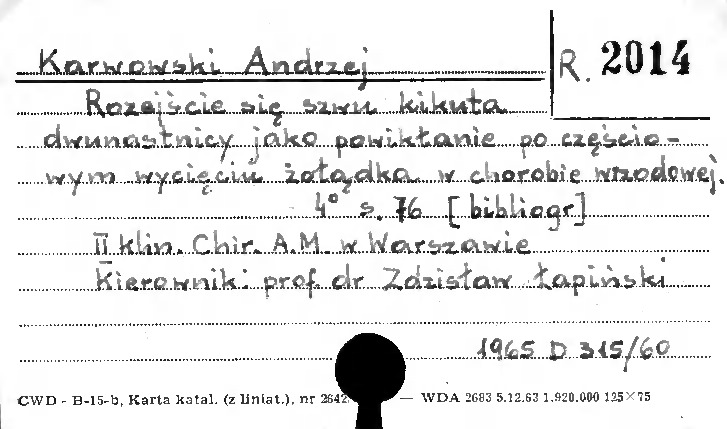 Karwowski Andrzej
R. 2014
Rozejście się szwu kikuta
dwunastnicy jako powikłanie po częścio-
wym wycięciu żołądka w chorobie wrzodowej.
4° s. 76 [bibliogr]
II klin. Chir. A.M. w Warszawie
Kierownik: prof. dr Zdzisław Łapiński
1965 D 315/60
CWD - B-15-b, Karta katal. (z liniat.), nr 2642 — WDA 2683 5.12.63 1.920.000 125×75